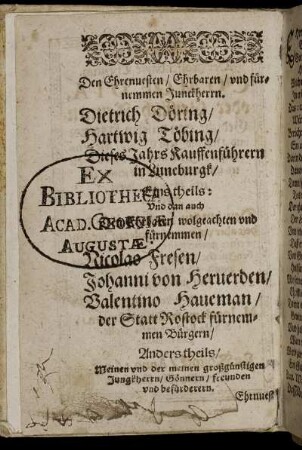 Den Ehrenuesten / Ehrbaren / vnd für-
nemmen Junckherrn.
Dietrich Döring /
Hartwig Töbing /
Dieses Jahrs Kauffenführern
in Lüneburgk /
Eins theils:
Vnd dan auch
wolgeachten vnd
fürnemmen /
Nicolao Fresen /
Johanni von Heruerden /
Valentino Haueman /
der Statt Rostock fürnem-
men Bürgern /
Anders theils /
Meinen vnd der meinen großgünstigen
Jungkherrn / Gönnern / freunden
vnd befürderern.
Ehrnuest
EX
BIBLIOTHECA
ACAD. GEORGIÆ
AUGUSTÆ.